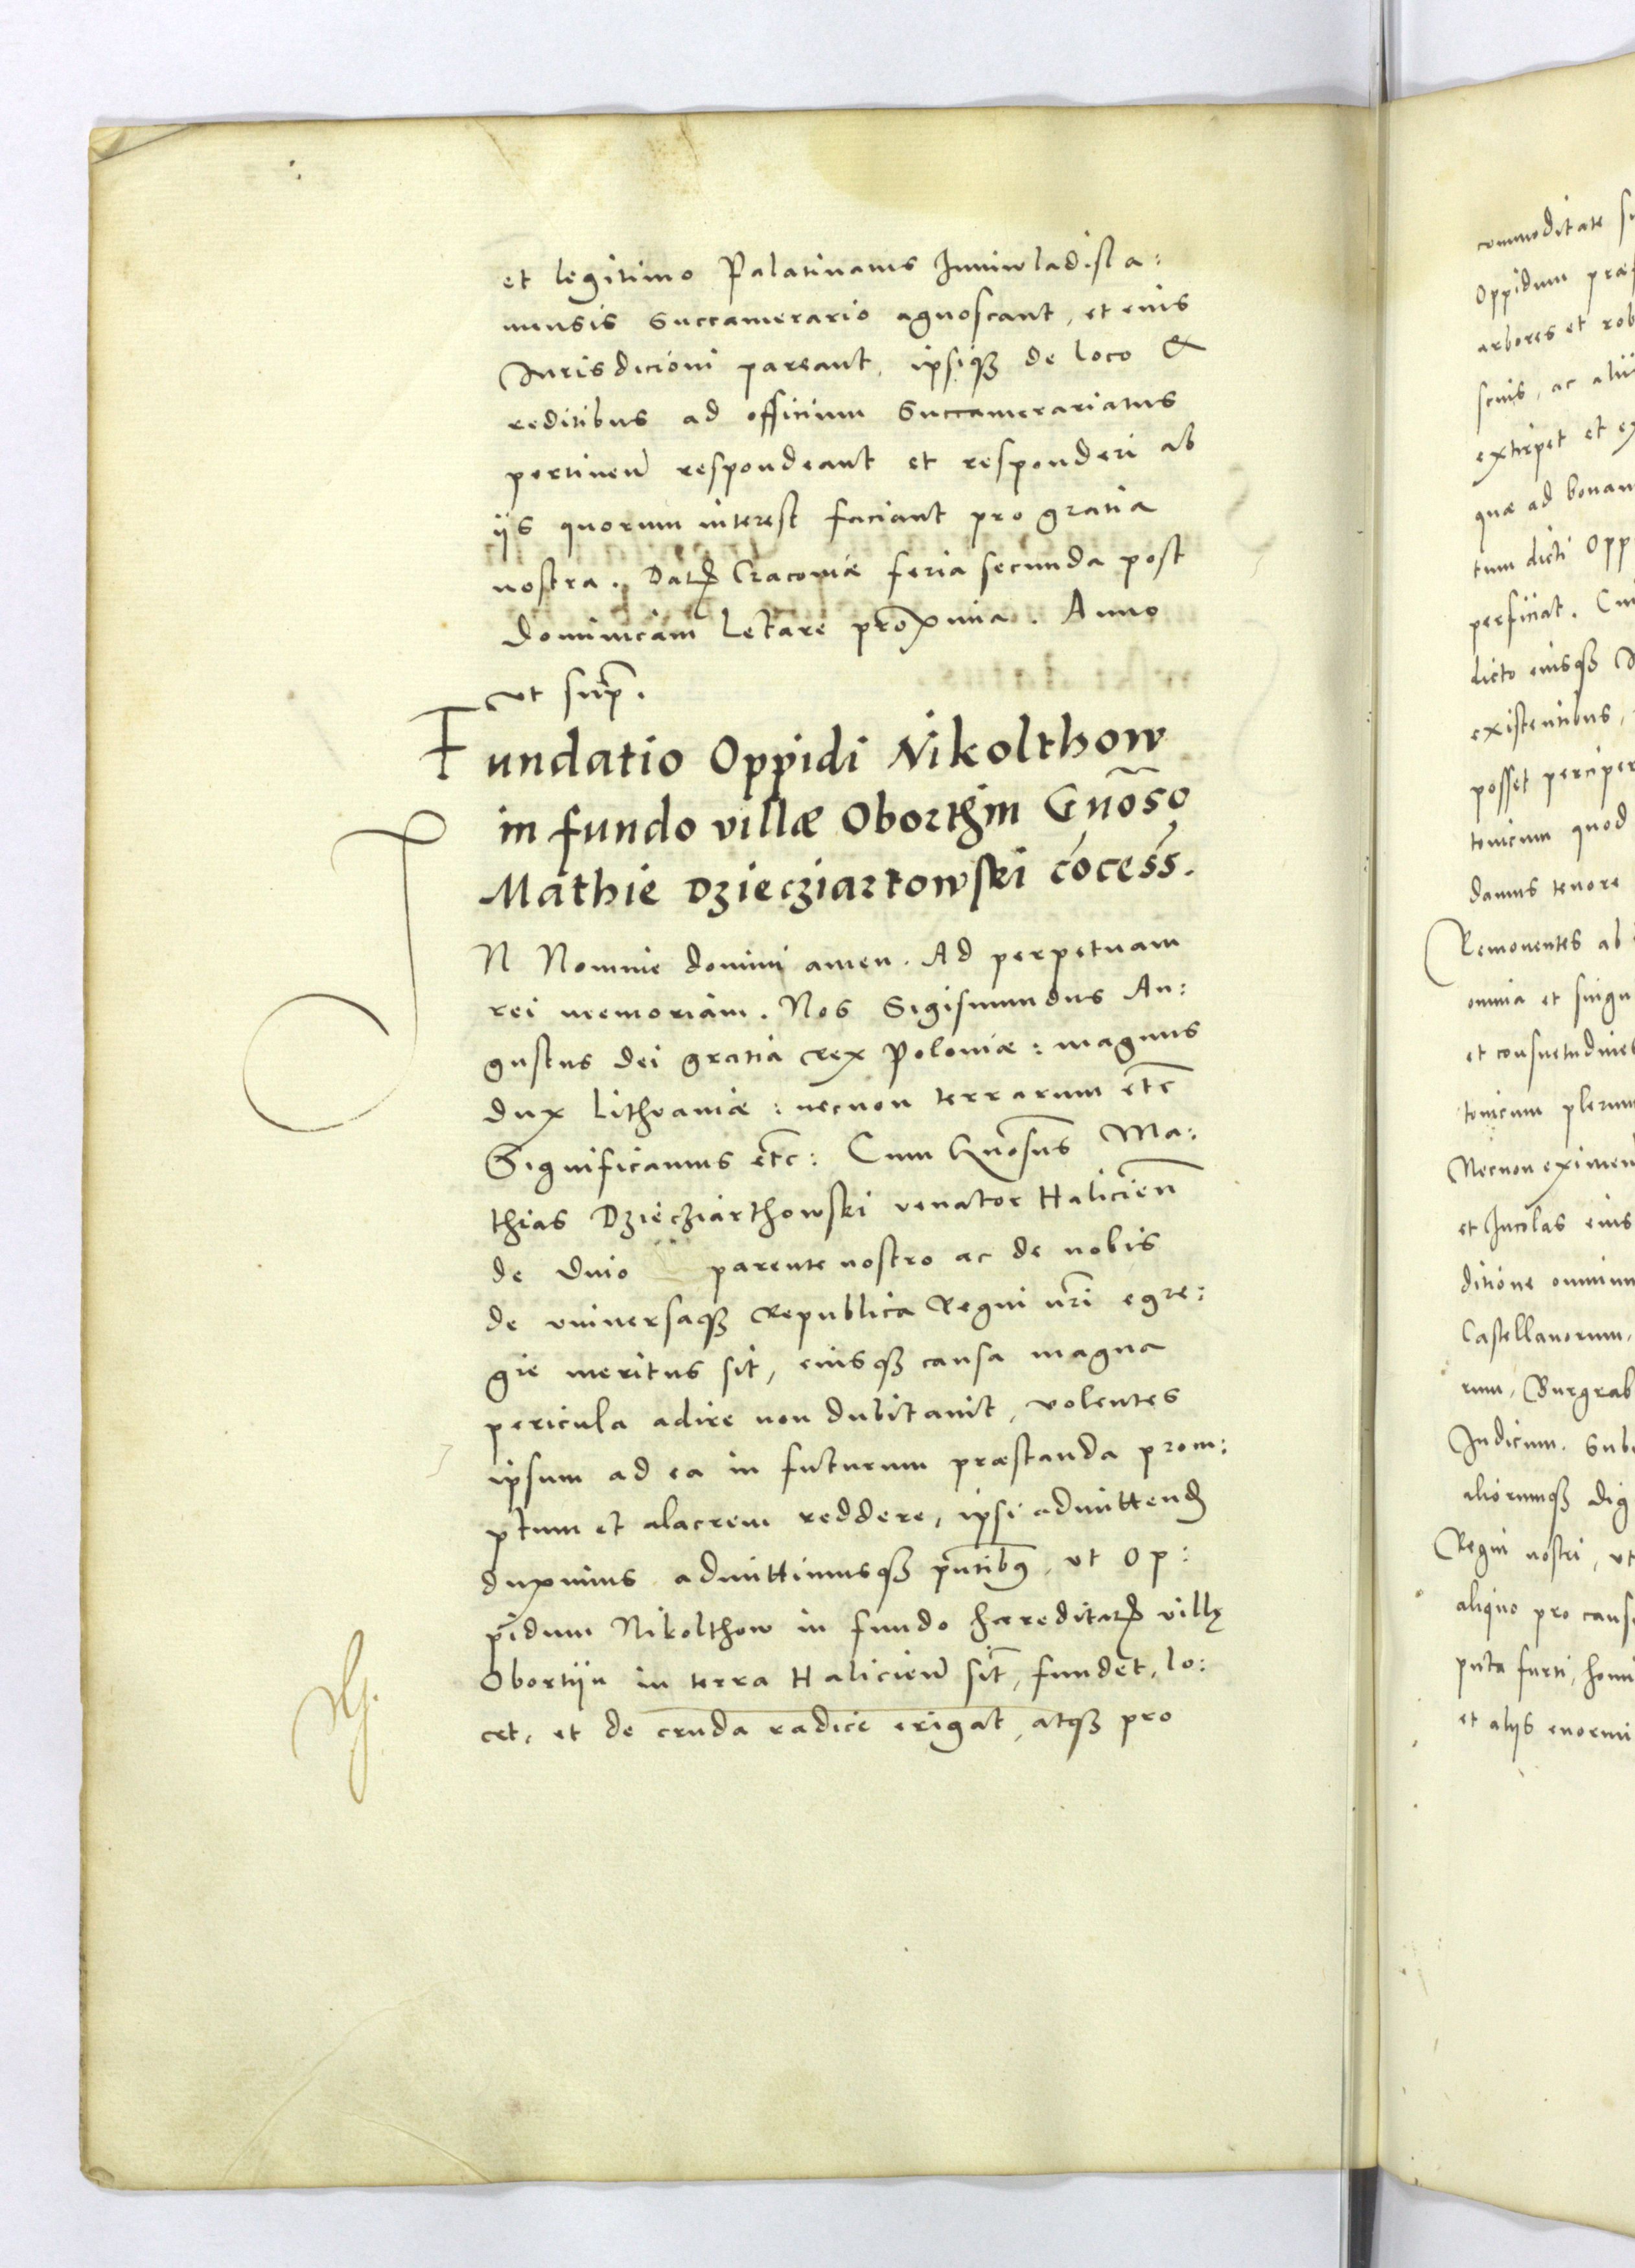 et legitimo Palatinatus Juniwladisla:
uiensis Succamerario agnoscant, et eius
Jurisdicioni pareant, ipsiqꝫ de loco &
reditibus ad officium Succamerariatus
pertineñ respondeant et responderi ab
ijs quorum interest faciant pro gratia
nostra. Datꝭ Cracoviæ feria secunda post
Dominicam Letare proxima. Anno
ut sup̃.
Fundatio Oppidi Nikolthow
in fundo villæ Oborthin Gño͂so
Mathie Dziecziartowski co͂cess̃.
IN Nomine domini amen. Ad perpetuam
rei memoriam. Nos Sigismundus Au:
gustus dei gratia rex Poloniæ: magnus
dux Lithvaniæ: necnon terrarum etc̃
Significamus etc̃: Cum Gño͂sus Ma:
thias Dziecziarthowski venator Halicieñ
de Divo parente nostro ac de nobis
de vniversaqꝫ Republica Regni nr̃i egre:
gie meritus sit, eiusqꝫ causa magna
pericula adire non dubitavit, volentes
ipsum ad ea in futurum præstanda prom:
ptum et alacrem reddere, ipsi admittendꝭ
duximus admittimusqꝫ pñtibꝰ, ut Op:
pidum Nikolthow in fundo hæreditarꝭ villę
Obortijn in terra Halicieñ sit̃, fundet, lo:
cet, et de cruda radice erigat, atqꝫ pro
commoditate
Oppidum
arbores et rob
scuis, ac alii
extirpet et ex
quæ ad bonam
tum dicti Opp
perficiat.
dicto eiusqꝫ
existentibus,
posset perciper
tonicum quod
damus tenore
Removentes ab
omnia et singu
et consuetudines
tonicum plerum
Necnon eximen
et Incolas eius
ditione omnium
Castellanorum,
rum, Burgrab
Judicum. Sub
aliorumqꝫ dig
Regni nostri, ut
aliquo pro caus
puta furti, homi
et alijs enormi